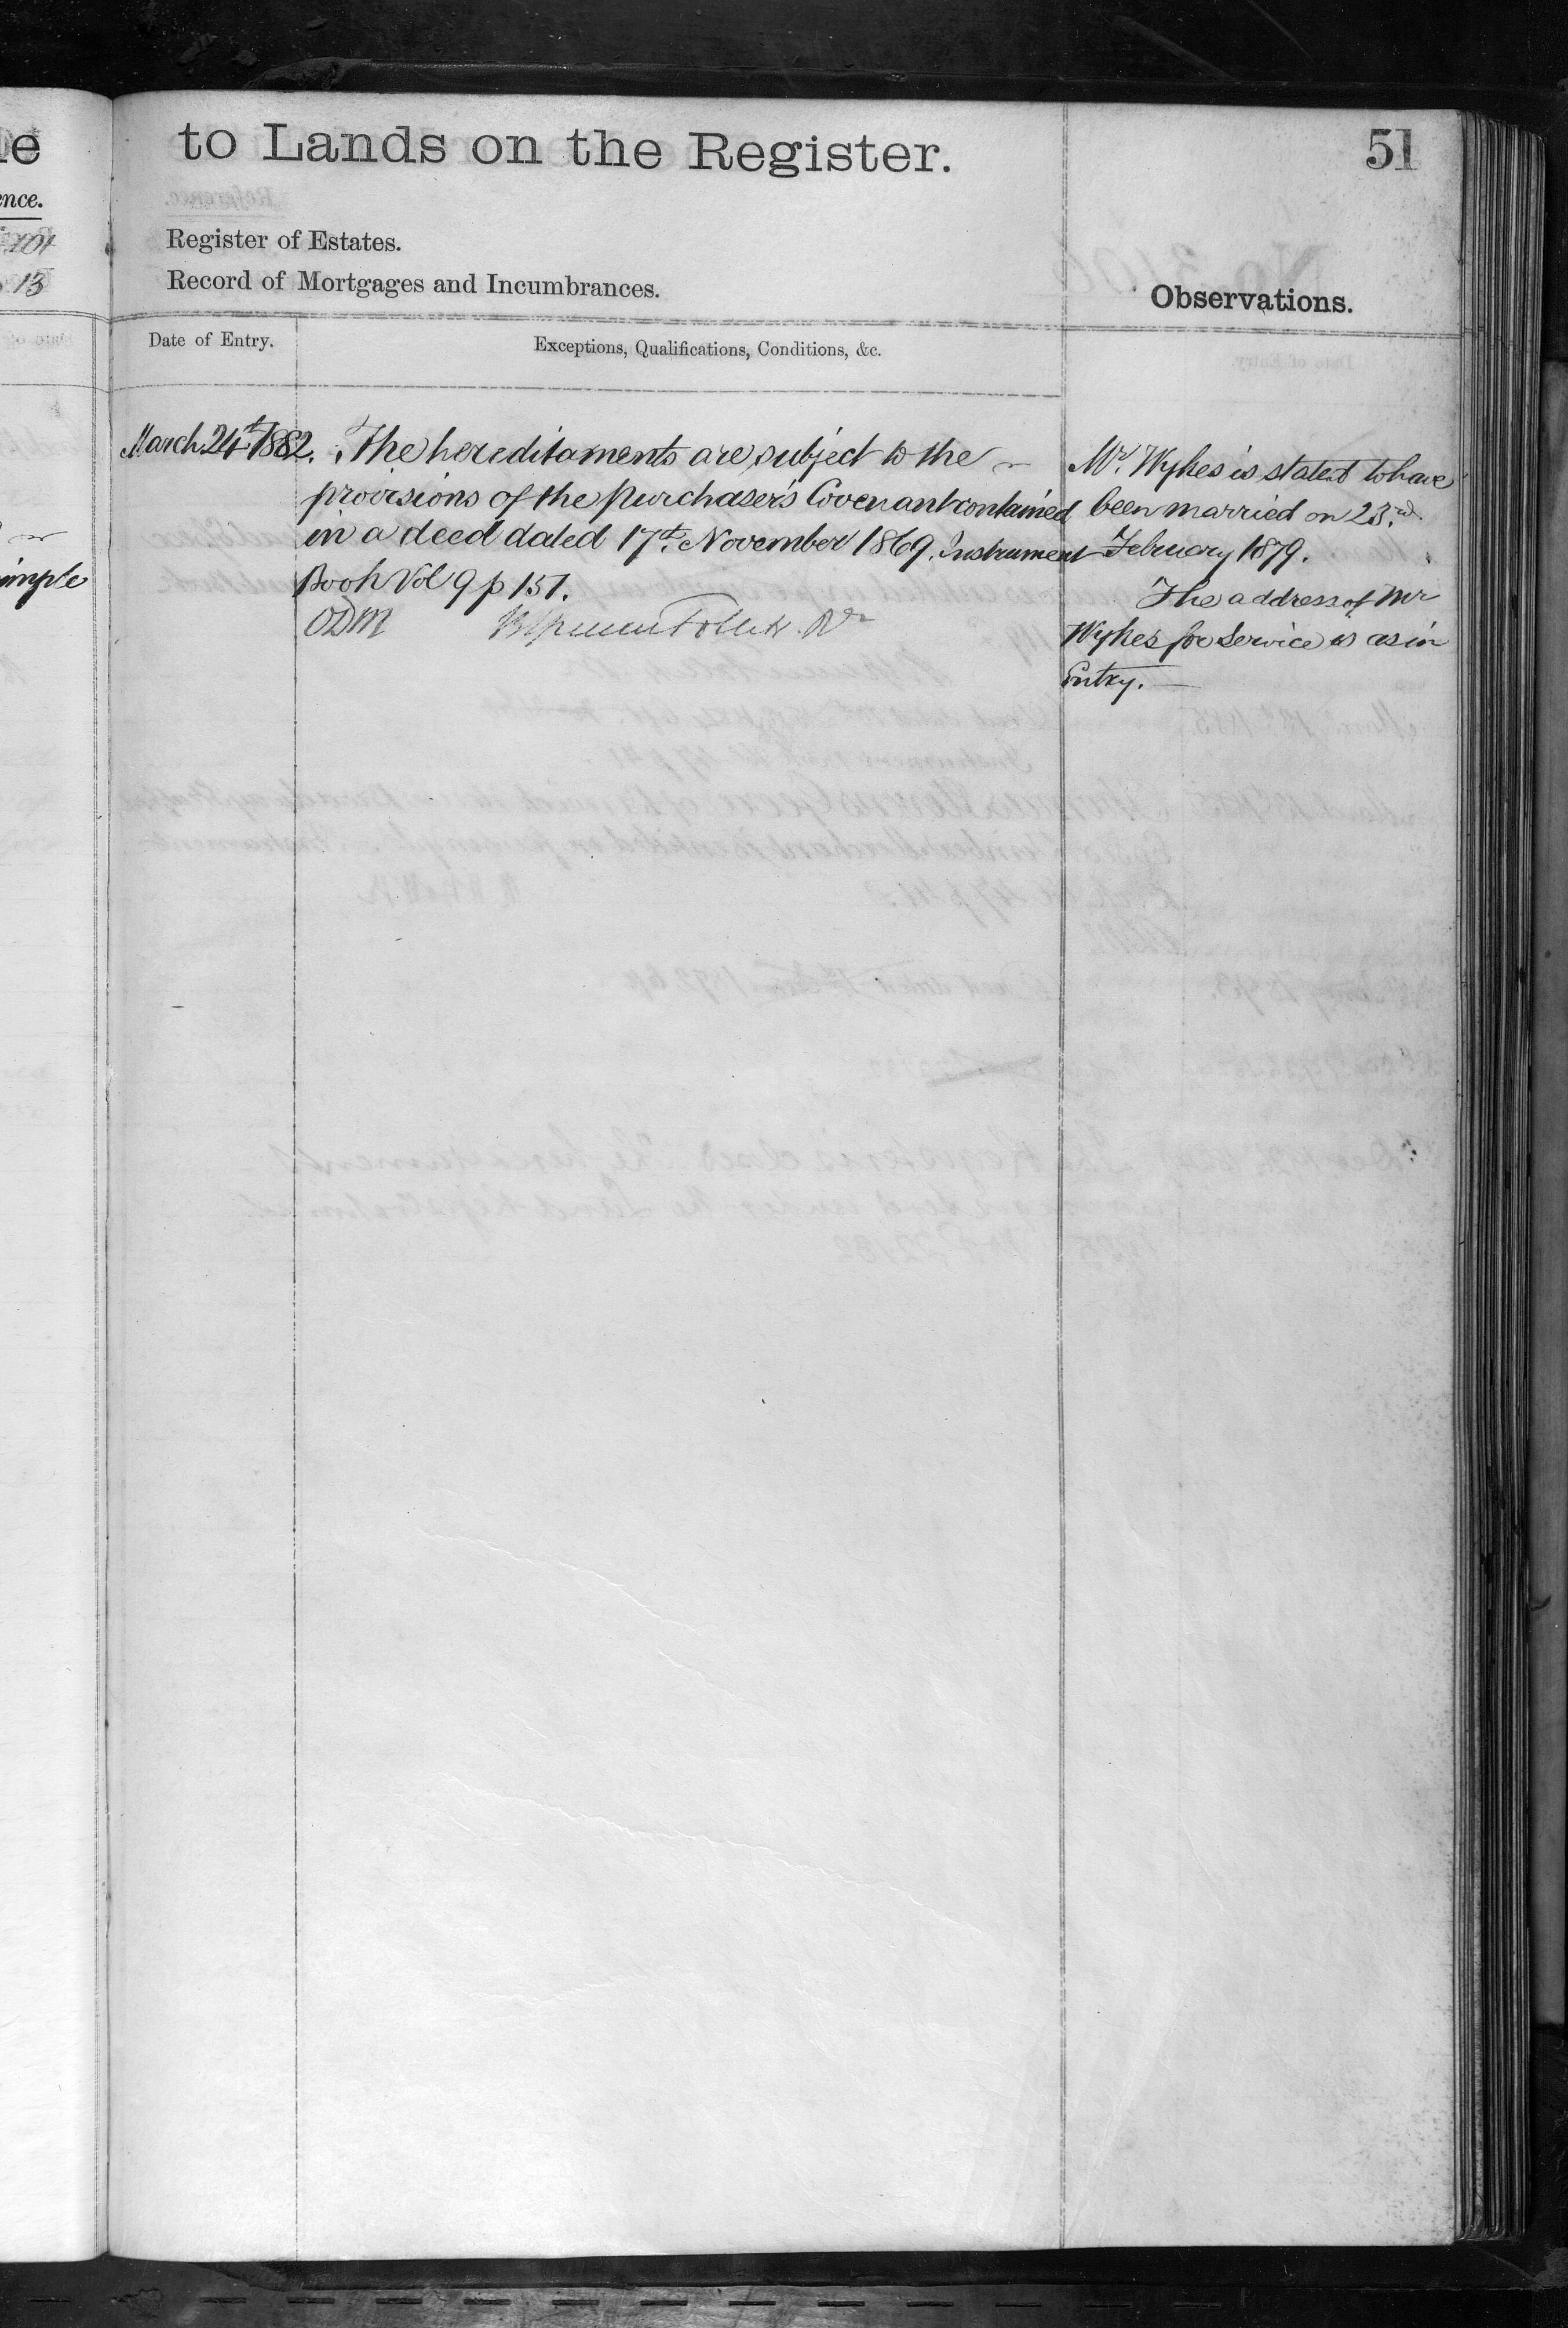 to Lands on the Register.
51
Register of Estates.
Record of Mortgages and Incumbrances.
Observations.
Date of Entry.
Exceptions, Qualifications, Conditions, &c.
March 24th 1882.
The hereditaments are subject to the
provisions of the purchaser's Covenant contained
in a deed dated 17th November 1869. Instrument
Book Vol 9 p 151.
ODM
Mr. Wykes is stated to have
been married on 23rd
February 1879.
The address of Mr
Wykes for Service is as in
Entry.
ence.
101
13
imple